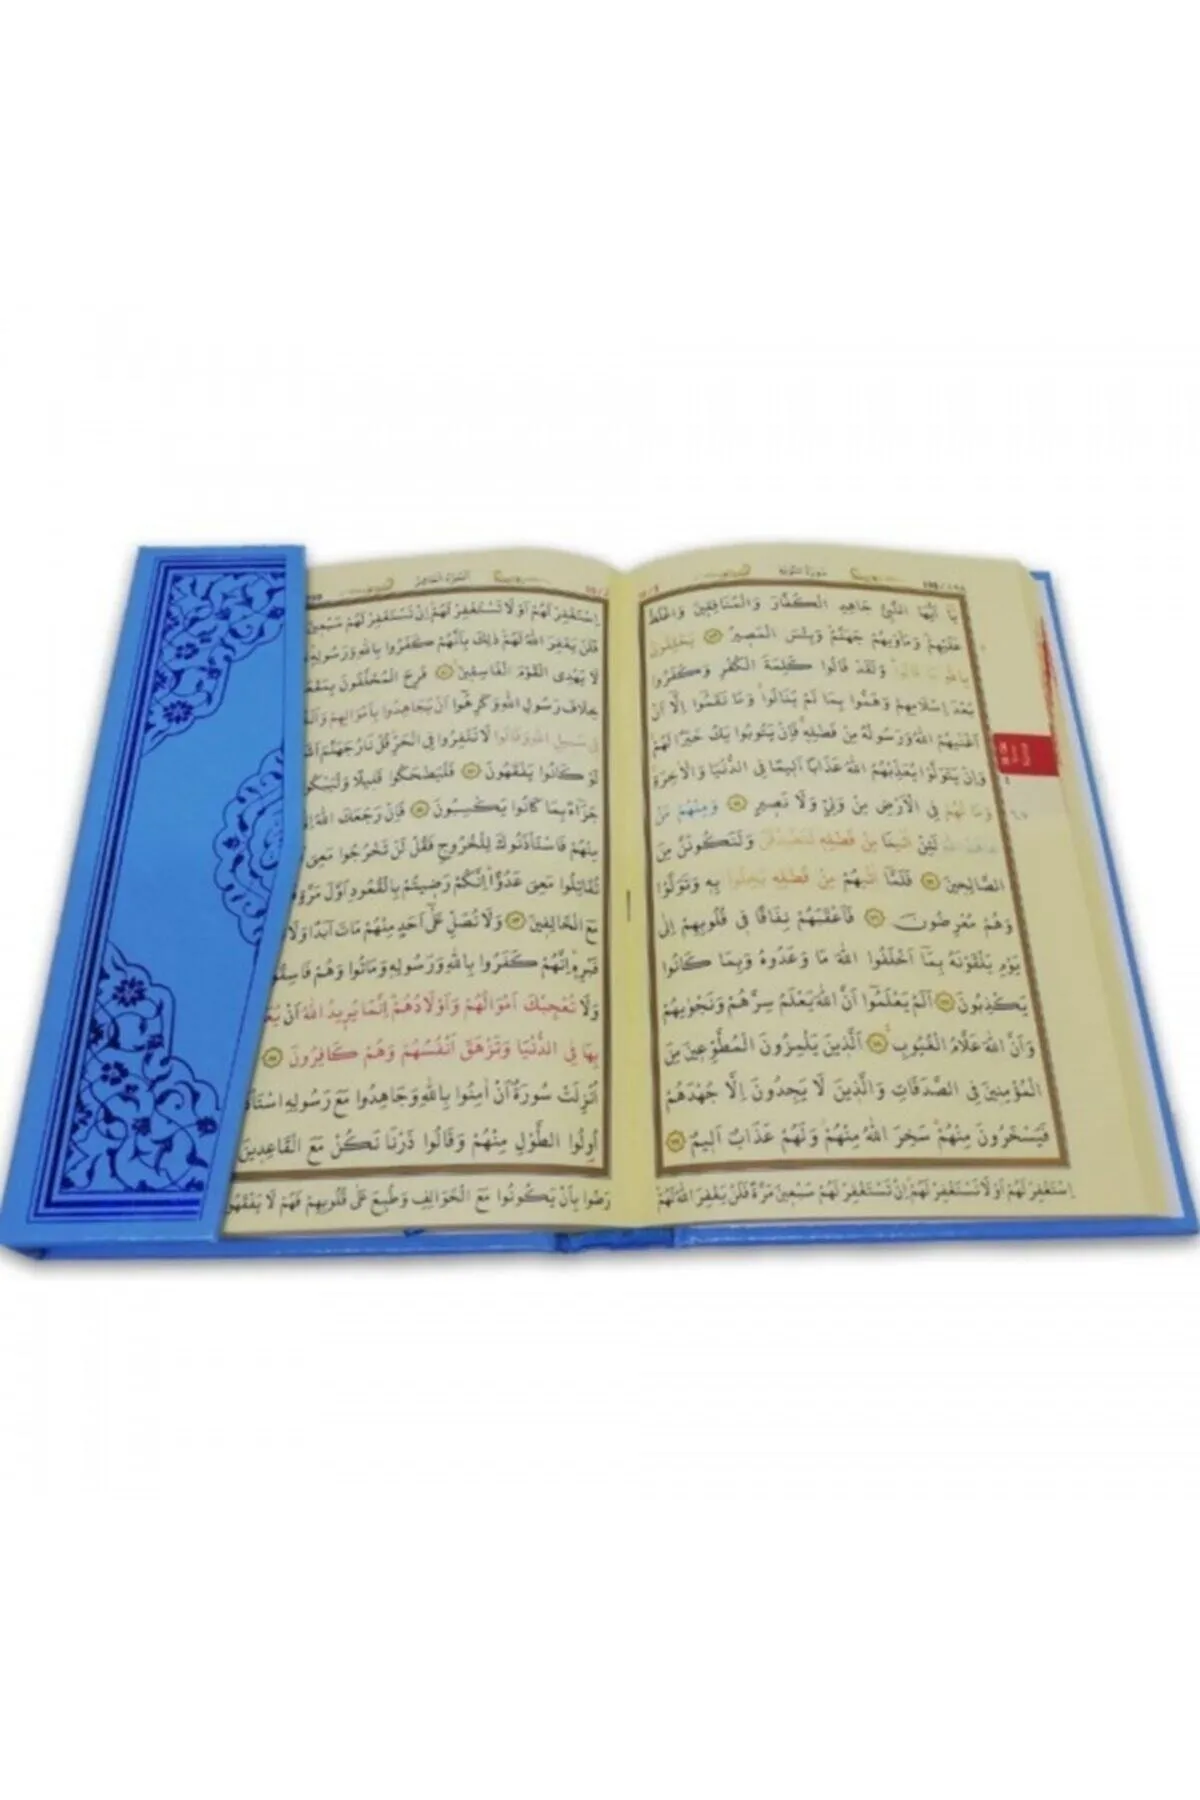 سورة التوبة
يَا اَيُّهَا النَّبِيُّ جَاهِدِ الْكُفَّارَ وَالْمُنَافِقِينَ وَاغْلُظْ
عَلَيْهِمْ وَمَأْوٰيهُمْ جَهَنَّمُ وَبِئْسَ الْمَصِيرُ يَحْلِفُونَ
بِاللّٰهِ مَا قَالُوا وَلَقَدْ قَالُوا كَلِمَةَ الْكُفْرِ وَكَفَرُوا
بَعْدَ اِسْلَامِهِمْ وَهَمُّوا بِمَا لَمْ يَنَالُوا وَمَا نَقَمُوا اِلَّا اَنْ
اَغْنٰيهُمُ اللّٰهُ وَرَسُولُهُ مِنْ فَضْلِهِ فَاِنْ يَتُوبُوا يَكُ خَيْرًا لَهُمْ
وَاِنْ يَتَوَلَّوْا يُعَذِّبْهُمُ اللّٰهُ عَذَابًا اَلِيمًا فِي الدُّنْيَا وَالْاٰخِرَةِ
وَمَا لَهُمْ فِي الْاَرْضِ مِنْ وَلِيٍّ وَلَا نَصِيرٍ وَمِنْهُمْ مَنْ
عَاهَدَ اللّٰهَ لَئِنْ اٰتٰينَا مِنْ فَضْلِهِ لَنَصَّدَّقَنَّ وَلَنَكُونَنَّ مِنَ
الصَّالِحِينَ فَلَمَّا اٰتٰيهُمْ مِنْ فَضْلِهِ بَخِلُوا بِهِ وَتَوَلَّوْا
وَهُمْ مُعْرِضُونَ فَاَعْقَبَهُمْ نِفَاقًا فِي قُلُوبِهِمْ اِلٰى
يَوْمِ يَلْقَوْنَهُ بِمَا اَخْلَفُوا اللّٰهَ مَا وَعَدُوهُ وَبِمَا كَانُوا
يَكْذِبُونَ اَلَمْ يَعْلَمُوا اَنَّ اللّٰهَ يَعْلَمُ سِرَّهُمْ وَنَجْوٰيهُمْ
وَاَنَّ اللّٰهَ عَلَّامُ الْغُيُوبِ اَلَّذِينَ يَلْمِزُونَ الْمُطَّوِّعِينَ مِنَ
الْمُؤْمِنِينَ فِي الصَّدَقَاتِ وَالَّذِينَ لَا يَجِدُونَ اِلَّا جُهْدَهُمْ
فَيَسْخَرُونَ مِنْهُمْ سَخِرَ اللّٰهُ مِنْهُمْ وَلَهُمْ عَذَابٌ اَلِيمٌ
اِسْتَغْفِرْ لَهُمْ اَوْ لَا تَسْتَغْفِرْ لَهُمْ اِنْ تَسْتَغْفِرْ لَهُمْ سَبْعِينَ مَرَّةً فَلَنْ يَغْفِرَ اللّٰهُ لَهُمْ
الجزء العاشر
اِسْتَغْفِرْ لَهُمْ اَوْ لَا تَسْتَغْفِرْ لَهُمْ اِنْ تَسْتَغْفِرْ لَهُمْ سَبْعِينَ
فَلَنْ يَغْفِرَ اللّٰهُ لَهُمْ ذٰلِكَ بِاَنَّهُمْ كَفَرُوا بِاللّٰهِ وَرَسُولِهِ
لَا يَهْدِي الْقَوْمَ الْفَاسِقِينَ فَرِحَ الْمُخَلَّفُونَ بِمَقْعَدِ
خِلَافَ رَسُولِ اللّٰهِ وَكَرِهُوا اَنْ يُجَاهِدُوا بِاَمْوَالِهِمْ
فِي سَبِيلِ اللّٰهِ وَقَالُوا لَا تَنْفِرُوا فِي الْحَرِّ قُلْ نَارُ جَهَنَّمَ
لَوْ كَانُوا يَفْقَهُونَ فَلْيَضْحَكُوا قَلِيلًا وَلْيَبْكُوا
جَزَاءً بِمَا كَانُوا يَكْسِبُونَ فَاِنْ رَجَعَكَ اللّٰهُ
مِنْهُمْ فَاسْتَأْذَنُوكَ لِلْخُرُوجِ فَقُلْ لَنْ تَخْرُجُوا مَعِيَ
تُقَاتِلُوا مَعِيَ عَدُوًّا اِنَّكُمْ رَضِيتُمْ بِالْقُعُودِ اَوَّلَ مَرَّةٍ
مَعَ الْخَالِفِينَ وَلَا تُصَلِّ عَلٰى اَحَدٍ مِنْهُمْ مَاتَ اَبَدًا وَلَا
قَبْرِهِ اِنَّهُمْ كَفَرُوا بِاللّٰهِ وَرَسُولِهِ وَمَاتُوا وَهُمْ
وَلَا تُعْجِبْكَ اَمْوَالُهُمْ وَاَوْلَادُهُمْ اِنَّمَا يُرِيدُ اللّٰهُ اَنْ
بِهَا فِي الدُّنْيَا وَتَزْهَقَ اَنْفُسُهُمْ وَهُمْ كَافِرُونَ
اُنْزِلَتْ سُورَةٌ اَنْ اٰمِنُوا بِاللّٰهِ وَجَاهِدُوا مَعَ رَسُولِهِ
اُولُوا الطَّوْلِ مِنْهُمْ وَقَالُوا ذَرْنَا نَكُنْ مَعَ الْقَاعِدِينَ
رَضُوا بِاَنْ يَكُونُوا مَعَ الْخَوَالِفِ وَطُبِعَ عَلٰى قُلُوبِهِمْ فَهُمْ لَا يَفْقَهُونَ